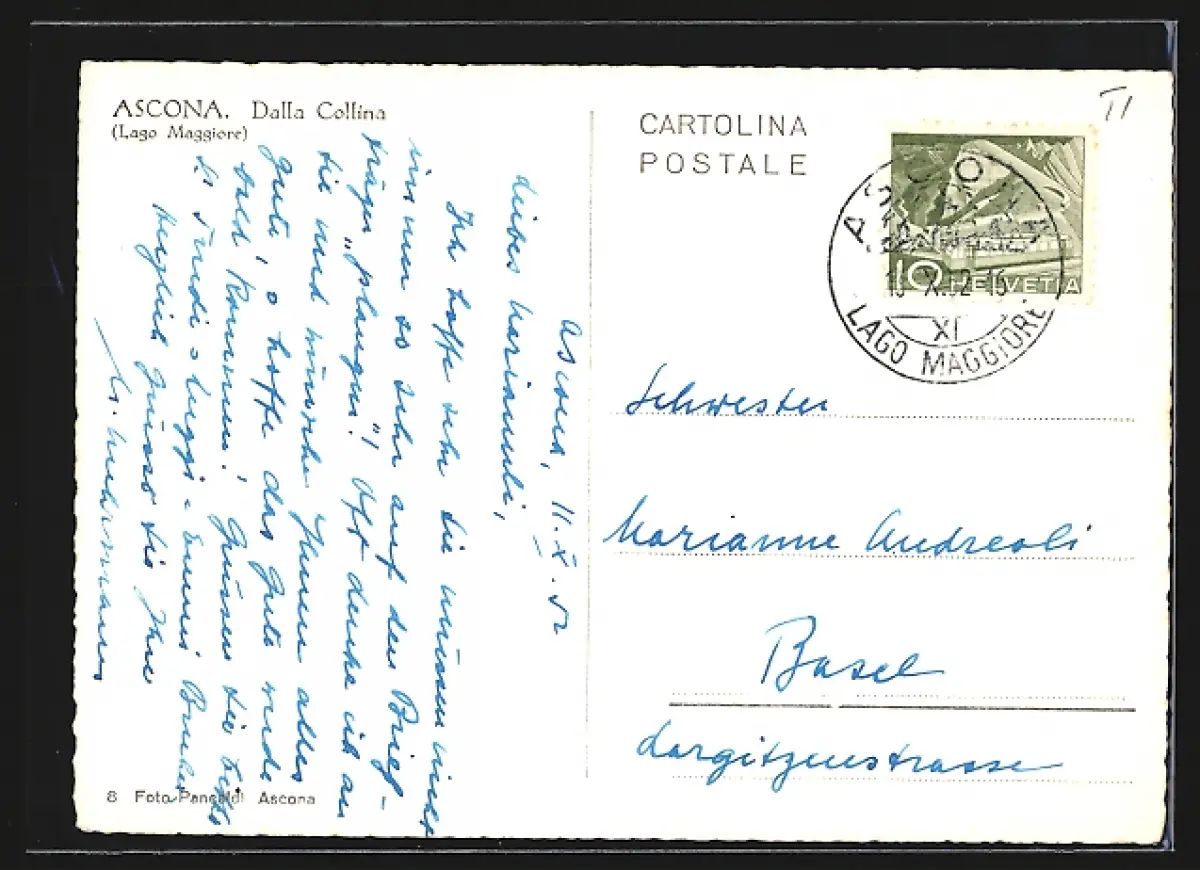 ASCONA. Dalla Collina
(Lago Maggiore)
Ascona, 11. X. 52
Liebes Mariannli,
Ich hoffe sehr Sie müssen nicht
so sehr auf den Brief-
träger „plangen"! Oft denke ich an
Sie und wünsche Ihnen alles
Gute, o hoffe das Gute werde
bald kommen! Grüssen Sie
Trudi - Luggi - Emmi
herzlich grüsst Sie Ihre
8 Foto Pancaldi Ascona
CARTOLINA
POSTALE
TI
ASCONA
10 HELVETIA
X. 52-15
XI
LAGO MAGGIORE
Schwester
Marianne Andreoli
Basel
Largitzenstrasse